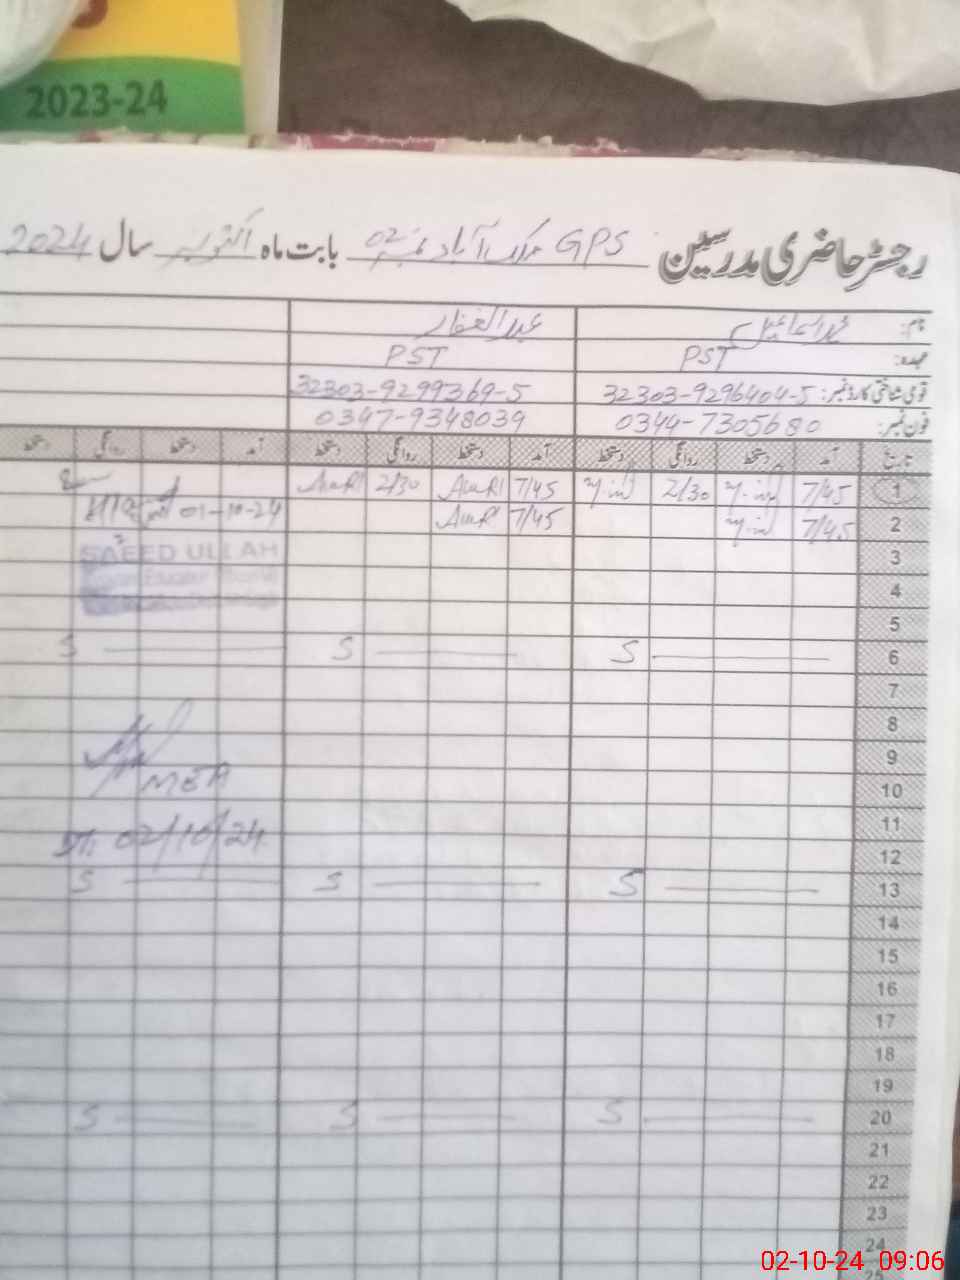 2023-24
رجسٹر حاضری مدرسین GPS مبارک آباد نمبر 02 بابت ماہ اکتوبر سال 2024
نام: محمد اسماعیل عبدالغفار
عہدہ: PST PST
قومی شناختی کارڈ نمبر: 32303-9296404-5 32303-9299369-5
فون نمبر: 0344-7305680 0347-9348039
تاریخ آمد دستخط روانگی دستخط آمد دستخط روانگی دستخط آمد دستخط روانگی دستخط
1 7/45 2/30 7/45 2/30
2 7/45 7/45 01-10-24
3 SAEED ULLAH
4
5
6 S S S
7
8
9
10 MEA
11
12 Dt: 02/10/24
13 S S S
14
15
16
17
18
19
20 S S S
21
22
23
24
25
02-10-24 09:06